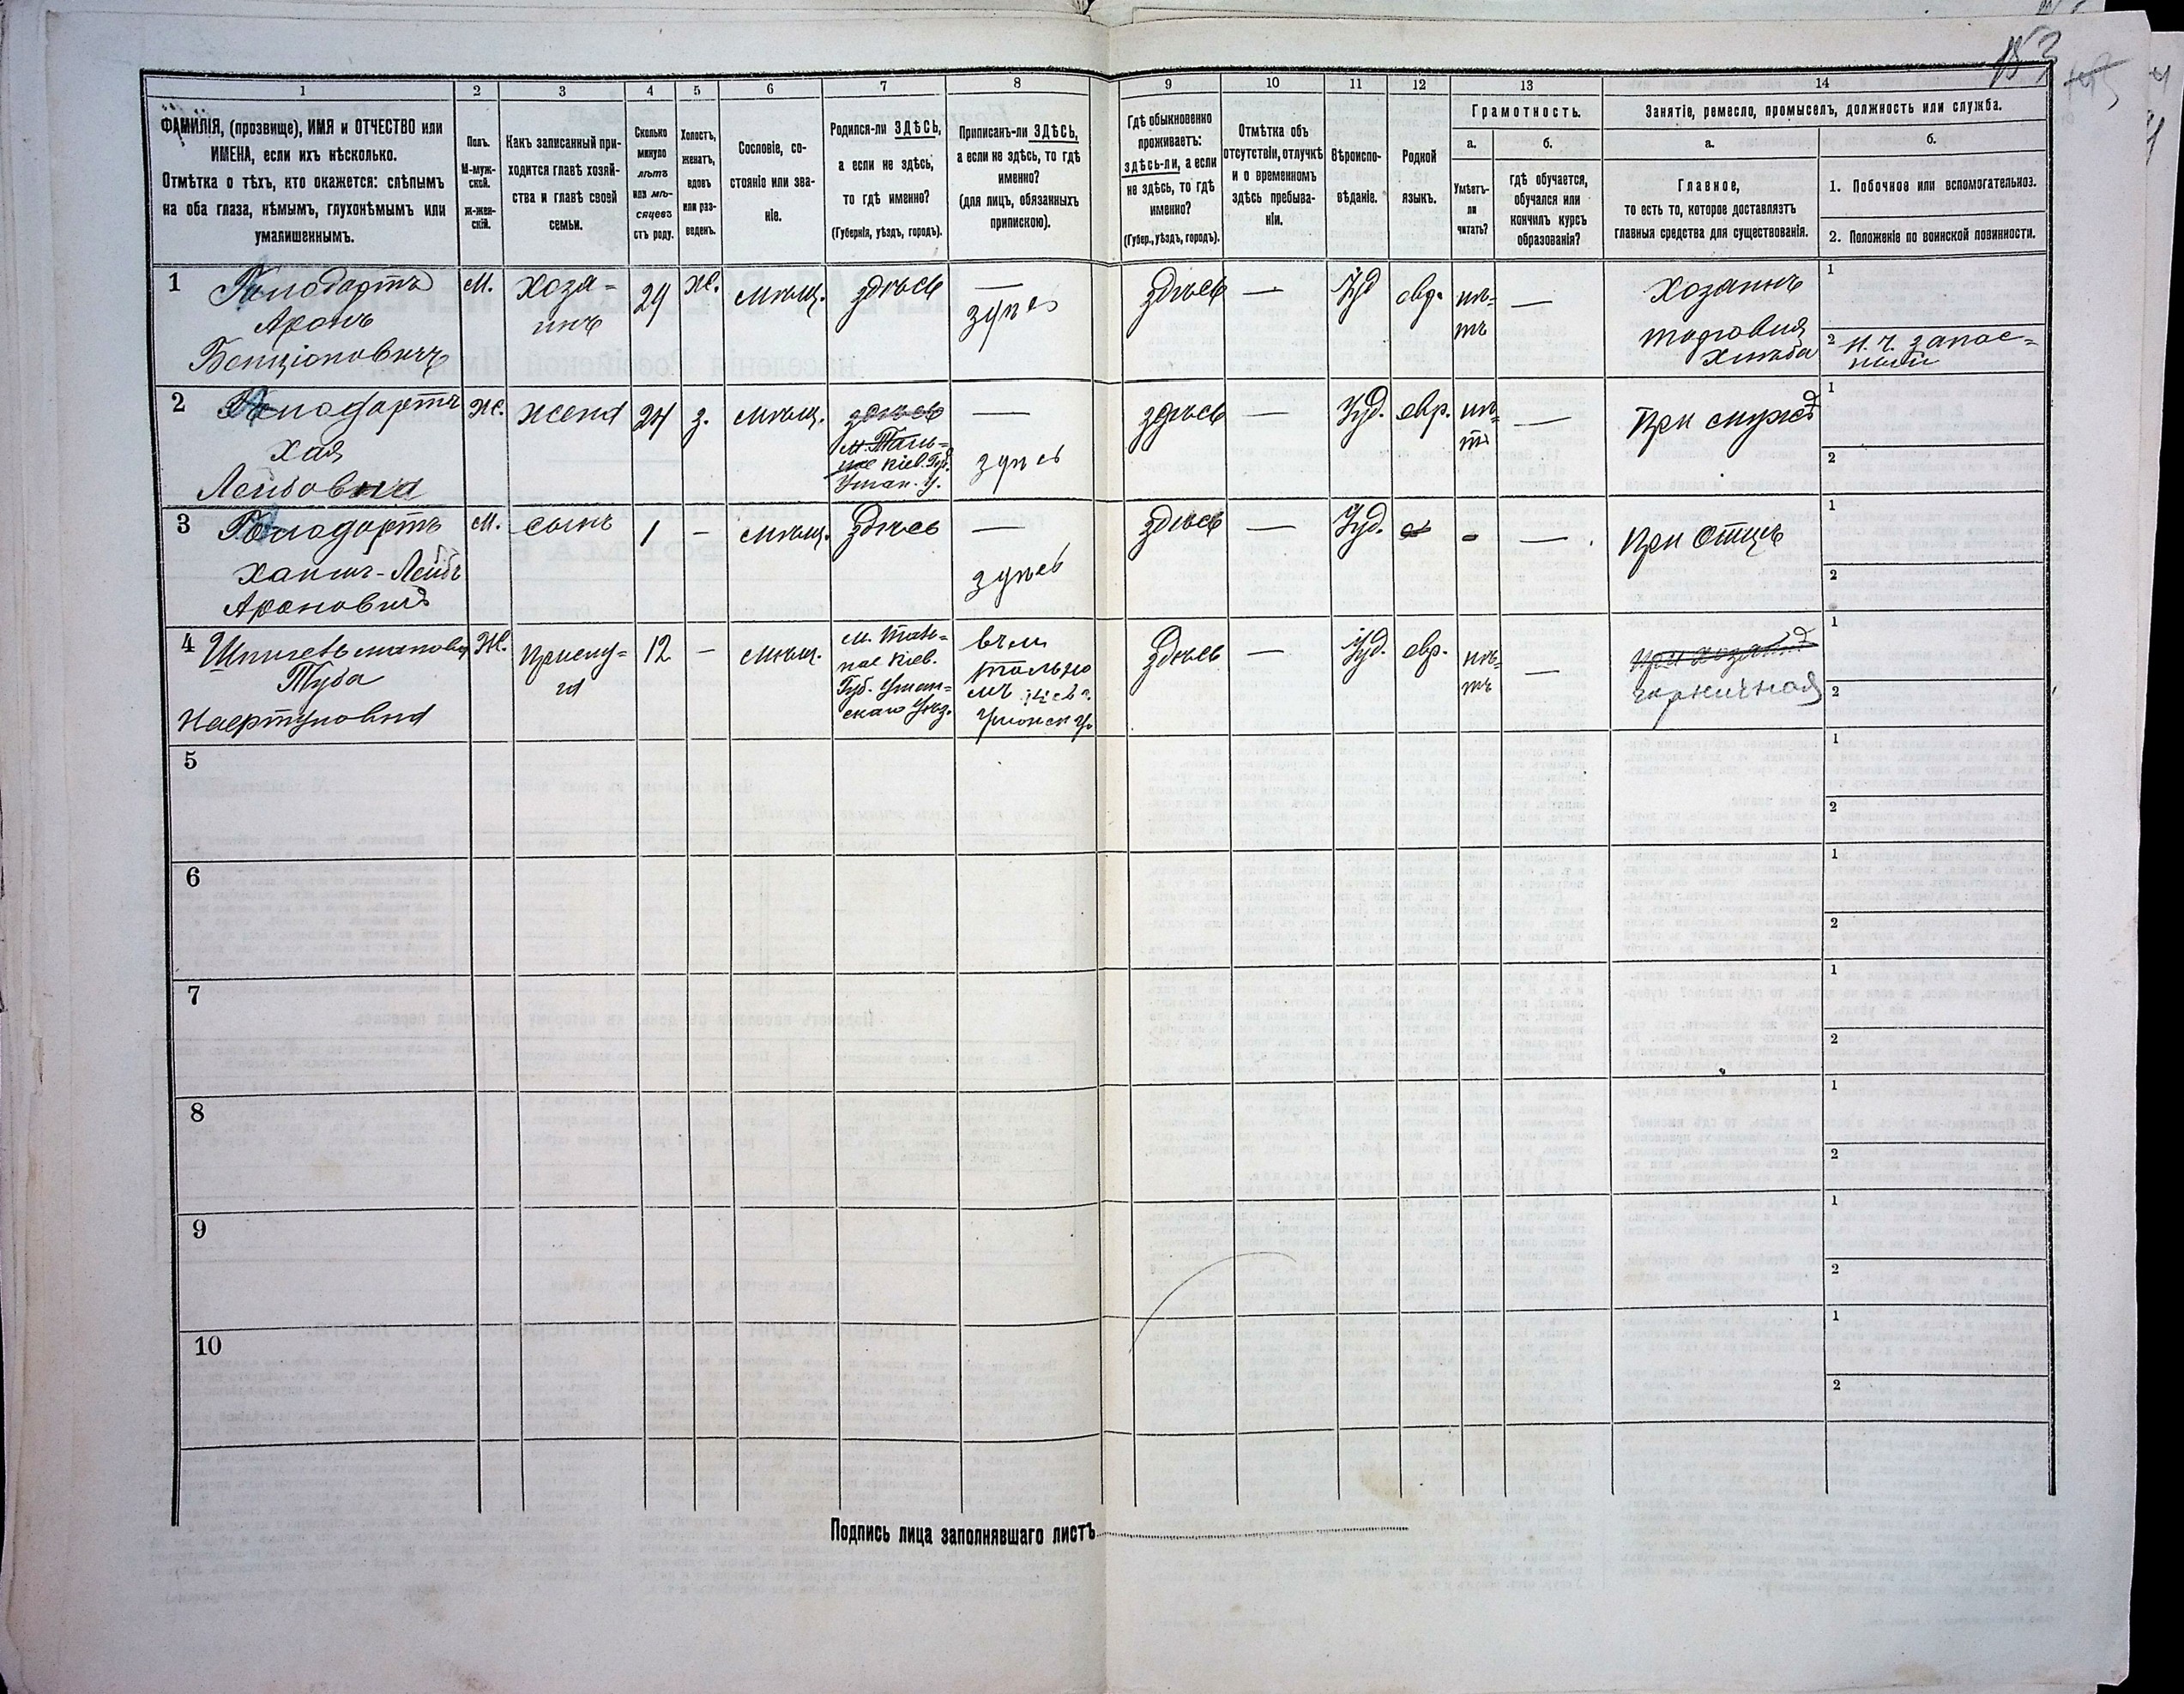 153
1 2 3 4 5 6 7 8 9 10 11 12 13 14
ФАМИЛІЯ, (прозвище), ИМЯ и ОТЧЕСТВО или
ИМЕНА, если ихъ нѣсколько.
Отмѣтка о тѣхъ, кто окажется: слѣпымъ
на оба глаза, нѣмымъ, глухонѣмымъ или
умалишеннымъ.
Полъ.
М-муж-
ской.
Ж-жен-
скій.
Какъ записанный при-
ходится главѣ хозяй-
ства и главѣ своей
семьи.
Сколько
минуло
лѣтъ
или мѣ-
сяцевъ
отъ роду.
Холостъ,
женатъ,
вдовъ
или раз-
веденъ.
Сословіе, со-
стояніе или зва-
ніе.
Родился-ли ЗДѢСЬ,
а если не здѣсь,
то гдѣ именно?
(Губернія, уѣздъ, городъ).
Приписанъ-ли ЗДѢСЬ,
а если не здѣсь, то гдѣ
именно?
(для лицъ, обязанныхъ
припискою).
Гдѣ обыкновенно
проживаетъ:
здѣсь-ли, а если
не здѣсь, то гдѣ
именно?
(Губер., уѣздъ, городъ).
Отмѣтка объ
отсутствіи, отлучкѣ
и о временномъ
здѣсь пребыва-
ніи.
Вѣроиспо-
вѣданіе.
Родной
языкъ.
Грамотность.
а.
Умѣетъ-
ли
читать?
б.
гдѣ обучается,
обучался или
кончилъ курсъ
образованія?
Занятіе, ремесло, промыселъ, должность или служба.
а.
Главное,
то есть то, которое доставляетъ
главныя средства для существованія.
б.
1. Побочное или вспомогательное.
2. Положеніе по воинской повинности.
1
Аронъ
Бенціоновичъ
М.
хозя-
инъ
29
ж.
мѣщ.
здѣсь
—
здѣсь
здѣсь
—
Іуд
евр.
нѣ-
тъ
—
Хозяинъ
торговля
хлѣба
1
2 н. ч. запас-
ной
2
Хая
Лейбовна
Ж.
жена
24
з.
мѣщ.
здѣсь
м. Таль-
ное Кіев. Губ.
Уман. у.
—
здѣсь
здѣсь
—
Іуд.
евр.
нѣ-
тъ
—
При мужѣ
1
2
3
Хаимъ-Лейбъ
Ароновичъ
М.
сынъ
1
-
мѣщ.
здѣсь
—
здѣсь
здѣсь
—
Іуд.
-
—
При Отцѣ
1
2
4
Туба
Ж.
прислу-
га
12
-
мѣщ.
м. Таль-
ное Кіев.
Губ. Уман-
скаго Уѣз.
въ м
Тально
мъ Кіев г.
Уманск у.
здѣсь
—
Іуд.
евр.
нѣ-
тъ
—
горничная
1
2
5
1
2
6
1
2
7
1
2
8
1
2
9
1
2
10
1
2
Подпись лица заполнявшаго листъ